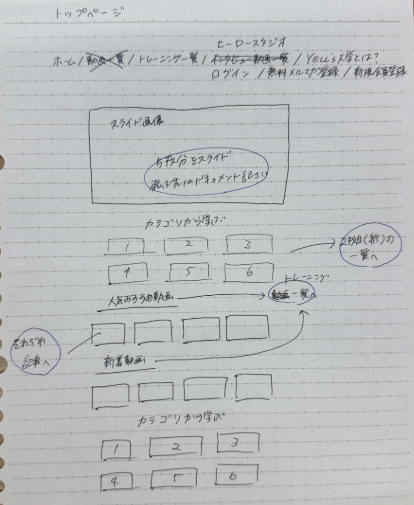 トップページ
ヒーロースタジオ
ホーム / 動画一覧 / トレーニング一覧 / インタビュー動画一覧 / YELL's大学とは?
ログイン / 無料メルマガ登録 / 新規会員登録
スライド画像
5枚分をスライド
飛ぶ先はドキュメント記載
カテゴリから学ぶ
1 2 3
4 5 6
一覧へ
人気おすすめ動画
トレーニング
動画一覧へ
それぞれ
記事へ
新着動画
カテゴリから学ぶ
1 2 3
4 5 6